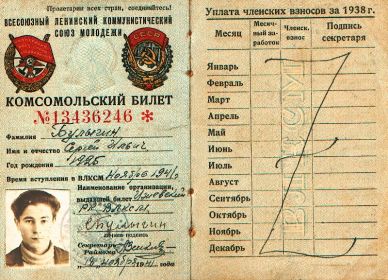 Пролетарии всех стран, соединяйтесь!
ВСЕСОЮЗНЫЙ ЛЕНИНСКИЙ КОММУНИСТИЧЕСКИЙ
СОЮЗ МОЛОДЕЖИ
СССР
КОМСОМОЛЬСКИЙ БИЛЕТ
№13436246 *
Фамилия Булыгин
Имя и отчество Сергей
Год рождения 1925
Время вступления в ВЛКСМ Ноябрь 1941 г
Наименование организации,
выдавшей билет
РК ВЛКСМ
Булыгин
личная подпись
Секретарь
Райкома
года
Уплата членских взносов за 1938 г.
Месяц
Месячный заработок
Членск. взнос
Подпись секретаря
Январь
Февраль
Март
Апрель
Май
Июнь
Июль
Август
Сентябрь
Октябрь
Ноябрь
Декабрь